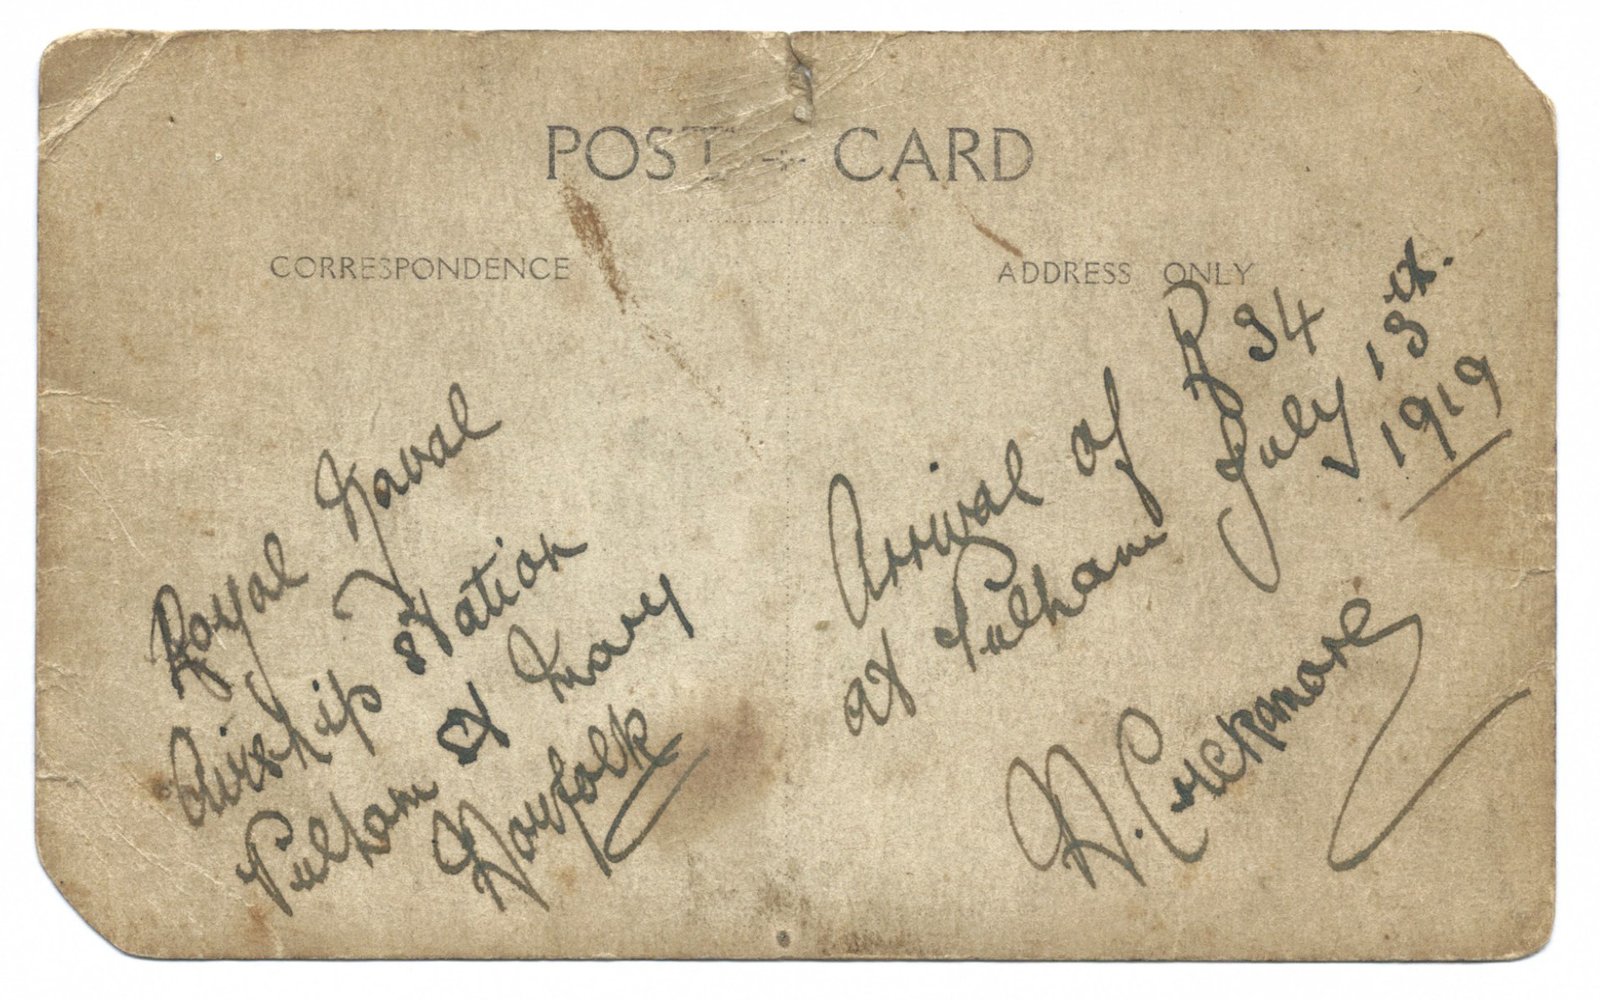 POST + CARD
CORRESPONDENCE
ADDRESS ONLY
Royal Naval
Airship Station
Pulham St Mary
Norfolk
Arrival of R 34
at Pulham July 13th.
1919